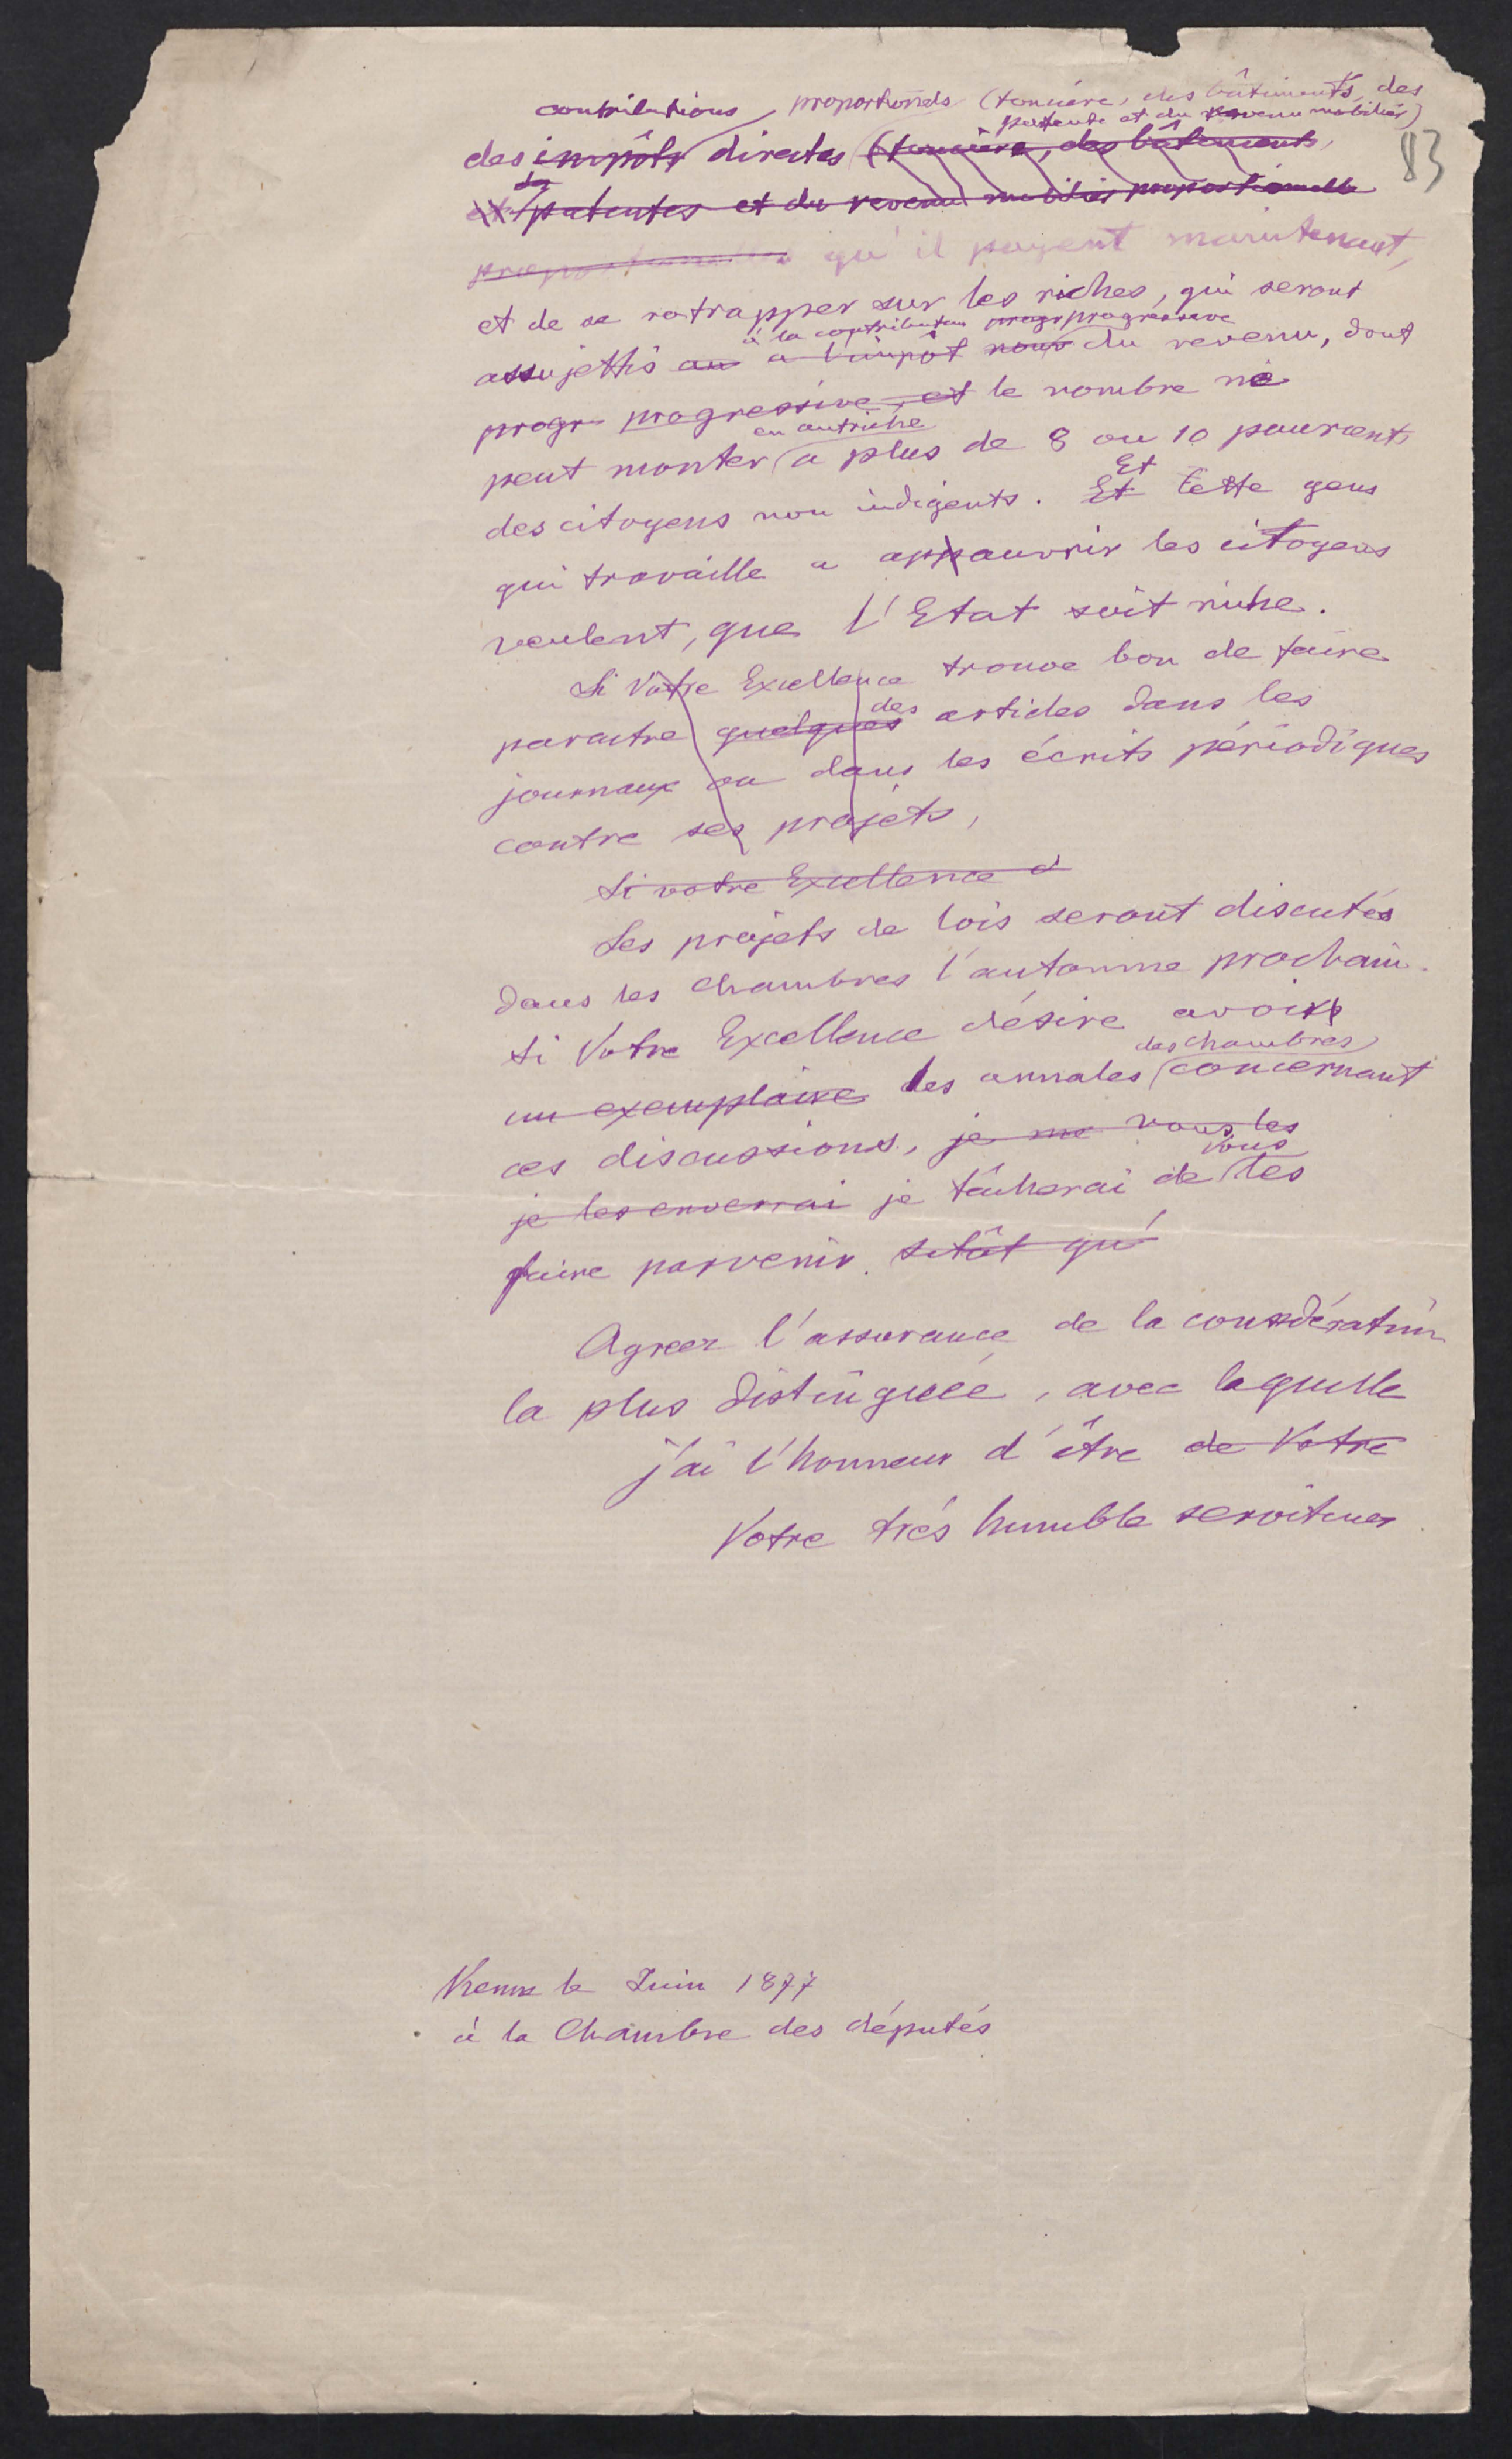 contributions proportionels (foncière, des bâtiments, des
patente et du revenu mobilièr)
83
des impôts directes (foncière, des bâtiments,
des
patentes et du revenu mobilier proportionnelle
proportionnelles qu'il payent maintenant,
et de se ratrapper sur les riches, qui seront
à la contribution progr progressive
assujettis au a l'impôt nouv du revenu, dont
progr progressive, et le nombre ne
en autriche
peut monter a plus de 8 ou 10 pourcent
Et
des citoyens non indigents. Et cette gens
qui travaille a appauvrir les citoyens
veulent, que l'Etat soit riche.
Si Votre Excellence trouve bon de faire
des
paraitre quelques articles dans les
journaux ou dans les écrits périodiques
contre ses projets,
Si votre Excellence d
Les projets de lois seront discutés
dans les chambres l'automne prochain.
Si Votre Excellence désire avoir
des chambres
un exemplaire des annales concernant
ces discussions, je me vous les
vous
je les enverrai je tâcherai de les
faire parvenir. sitôt qu'
Agreez l'assurance de la considération
la plus distinguée, avec laquelle
j'ai l'honneur d'être de Votre
Votre trés humble serviteur
Vienne le Juin 1877
à la Chambre des députés